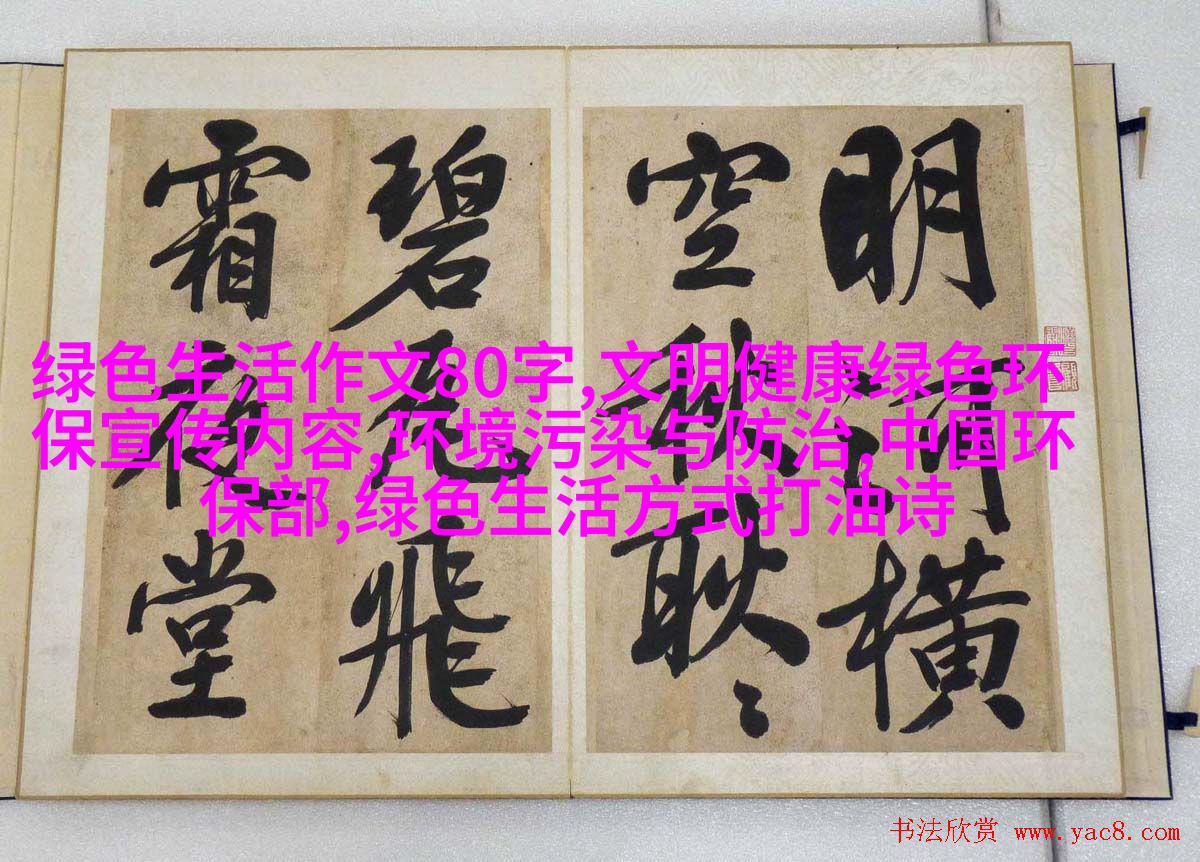 明河橫
空秋耿〻
碧瓦飛
霜夜堂
绿色生活作文80字,文明健康绿色环
保宣传内容,环境污染与防治,中国环
保部,绿色生活方式打油诗
书法欣赏 www.yac8.com